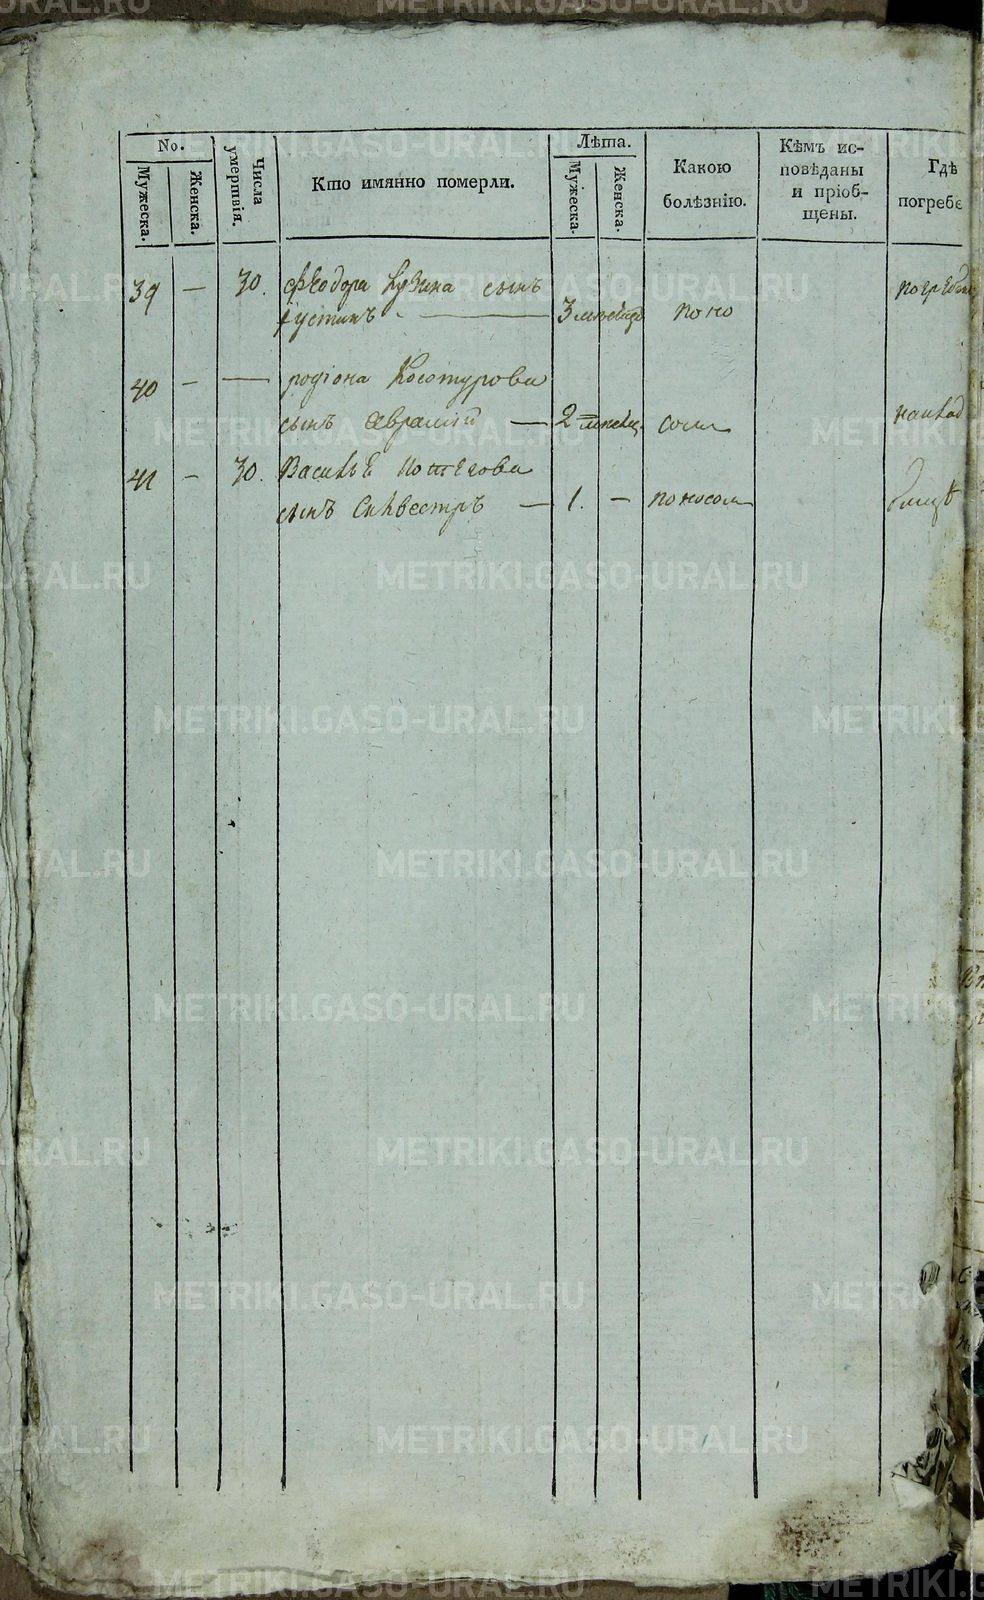 No.
Мужеска.
Женска.
Числа умертвія.
Кто имянно померли.
Лѣта.
Мужеска.
Женска.
Какою болѣзнію.
Кѣмъ ис-
повѣданы
и пріоб-
щены.
Гдѣ
погребе
39 — 30. Ѳеодора Кузина сынъ
Іустинъ — 3 поно
40 — — родіона Косотурова
сынъ Авраамій — 2 сомъ
41 — 30. Василье
сынъ Силвестръ — 1. — поносомъ
METRIKI.GASO-URAL.RU